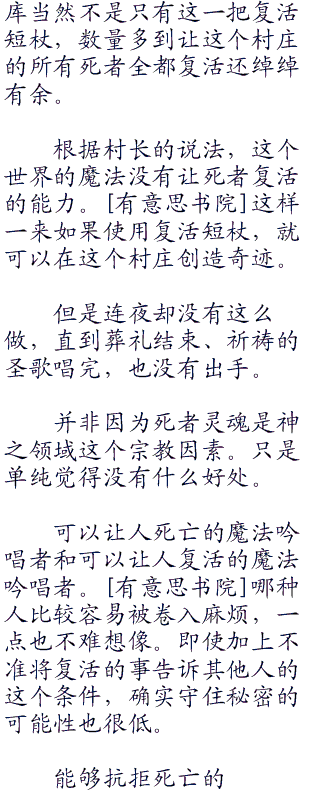 库当然不是只有这一把复活
短杖，数量多到让这个村庄
的所有死者全都复活还绰绰
有余。
根据村长的说法，这个
世界的魔法没有让死者复活
的能力。[有意思书院]这样
一来如果使用复活短杖，就
可以在这个村庄创造奇迹。
但是连夜却没有这么
做，直到葬礼结束、祈祷的
圣歌唱完，也没有出手。
并非因为死者灵魂是神
之领域这个宗教因素。只是
单纯觉得没有什么好处。
可以让人死亡的魔法吟
唱者和可以让人复活的魔法
吟唱者。[有意思书院]哪种
人比较容易被卷入麻烦，一
点也不难想像。即使加上不
准将复活的事告诉其他人的
这个条件，确实守住秘密的
可能性也很低。
能够抗拒死亡的